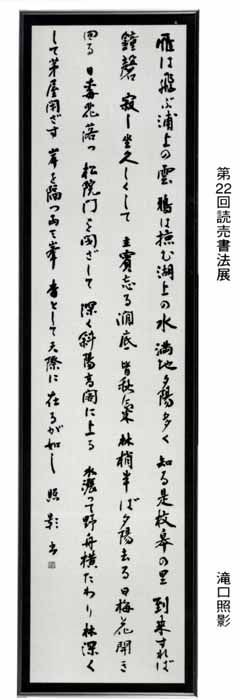 第22回読売書法展
滝口照影
雁は飛ぶ浦上の雲 鴎は掠む湖上の水 満地夕陽多く 知る是枝皋の里 到来すれば
鐘磬 寂し 坐久しくして 主賓忘る 澗底 皆秋気 林梢半ば夕陽去る日梅花開き
回る日委花落つ 松院門を閉ざして 深く 斜陽高閣に上る 水漲って野舟横たわり 林深く
して茅屋閉ざす 岸を隔つ両三峯 杳として天際に在るが如し 照影書